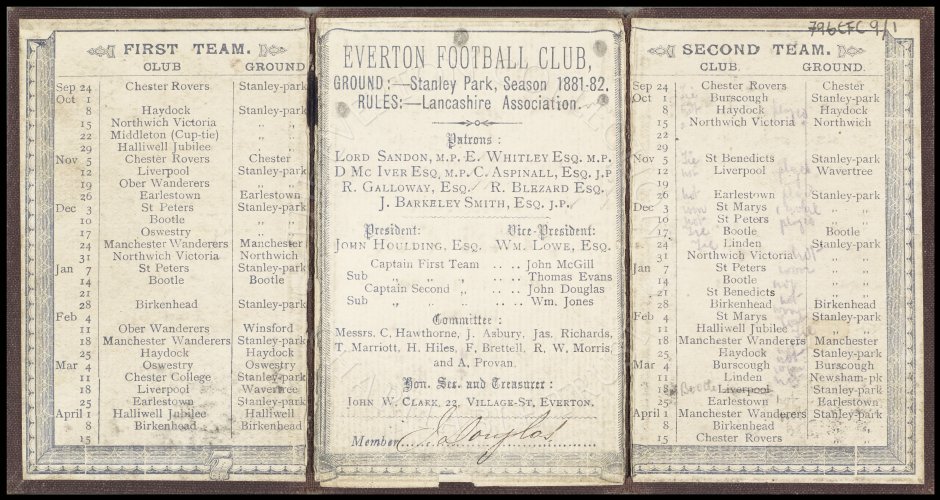 FIRST TEAM.
CLUB GROUND
Sep 24 Chester Rovers Stanley-park
Oct 1
8 Haydock Stanley-park
15 Northwich Victoria ,, ,,
22 Middleton (Cup-tie) ,, ,,
29 Halliwell Jubilee ,, ,,
Nov 5 Chester Rovers Chester
12 Liverpool Stanley-park
19 Ober Wanderers ,, ,,
26 Earlestown Earlestown
Dec 3 St Peters Stanley-park
10 Bootle ,, ,,
17 Oswestry ,, ,,
24 Manchester Wanderers Manchester
31 Northwich Victoria Northwich
Jan 7 St Peters Stanley-park
14 Bootle Bootle
21
28 Birkenhead Stanley-park
Feb 4
11 Ober Wanderers Winsford
18 Manchester Wanderers Stanley-park
25 Haydock Haydock
Mar 4 Oswestry Oswestry
11 Chester College Stanley-park
18 Liverpool Wavertree
25 Earlestown Stanley-park
April 1 Halliwell Jubilee Halliwell
8 Birkenhead Birkenhead
15
EVERTON FOOTBALL CLUB,
GROUND:—Stanley Park, Season 1881-82.
RULES:—Lancashire Association.
Patrons:
LORD SANDON, M.P. E. WHITLEY ESQ. M.P.
D MC IVER ESQ, M.P. C. ASPINALL, ESQ. J.P
R. GALLOWAY, ESQ. R. BLEZARD ESQ,
J. BARKELEY SMITH, ESQ. J.P.
President: Vice-President:
JOHN HOULDING, ESQ. WM. LOWE, ESQ.
Captain First Team .. .. John McGill
Sub ,, ,, .. .. Thomas Evans
Captain Second ,, .. .. John Douglas
Sub ,, ,, .. .. Wm. Jones
Committee:
Messrs. C, Hawthorne, J. Asbury, Jas. Richards,
T. Marriott, H. Hiles, F, Brettell, R. W, Morris,
and A, Provan.
Hon. Sec. and Treasurer:
JOHN W. CLARK, 23, VILLAGE-ST, EVERTON.
Member Douglas
796EFC 9/1
SECOND TEAM.
CLUB. GROUND.
Sep 24 Chester Rovers Chester
Oct 1 Burscough Stanley-park
8 Haydock Haydock
15 Northwich Victoria Northwich
22
29
Nov 5 St Benedicts Stanley-park
12 Liverpool Wavertree
19
26 Earlestown Stanley-park
Dec 3 St Marys ,, ,,
10 St Peters ,, ,,
17 Bootle Bootle
24 Linden Stanley-park
31 Northwich Victoria ,, ,,
Jan 7 St Peters ,, ,,
14 Bootle ,, ,,
21 St Benedicts ,, ,,
28 Birkenhead Birkenhead
Feb 4 St Marys Stanley-park
11 Halliwell Jubilee ,, ,,
18 Manchester Wanderers Manchester
25 Haydock Stanley-park
Mar 4 Burscough Burscough
11 Linden Newsham-pk
18 Liverpool Stanley-park
25 Earlestown Earlestown
April 1 Manchester Wanderers Stanley-park
8 Birkenhead ,, ,,
15 Chester Rovers ,, ,,